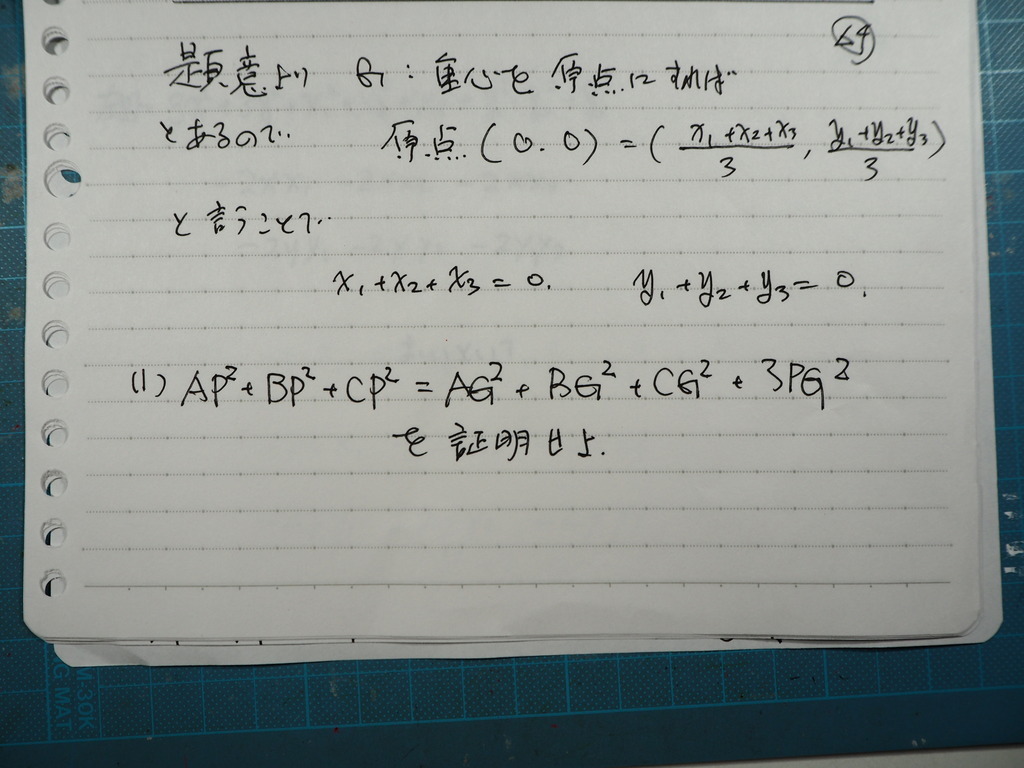 題意より G：重心を原点にすれば
とあるので、 原点(0.0)=(x₁+x₂+x₃/3, y₁+y₂+y₃/3)
と言うことで、
x₁+x₂+x₃=0. y₁+y₂+y₃=0.
(1) AP²+BP²+CP²=AG²+BG²+CG²+3PG²
を証明せよ.